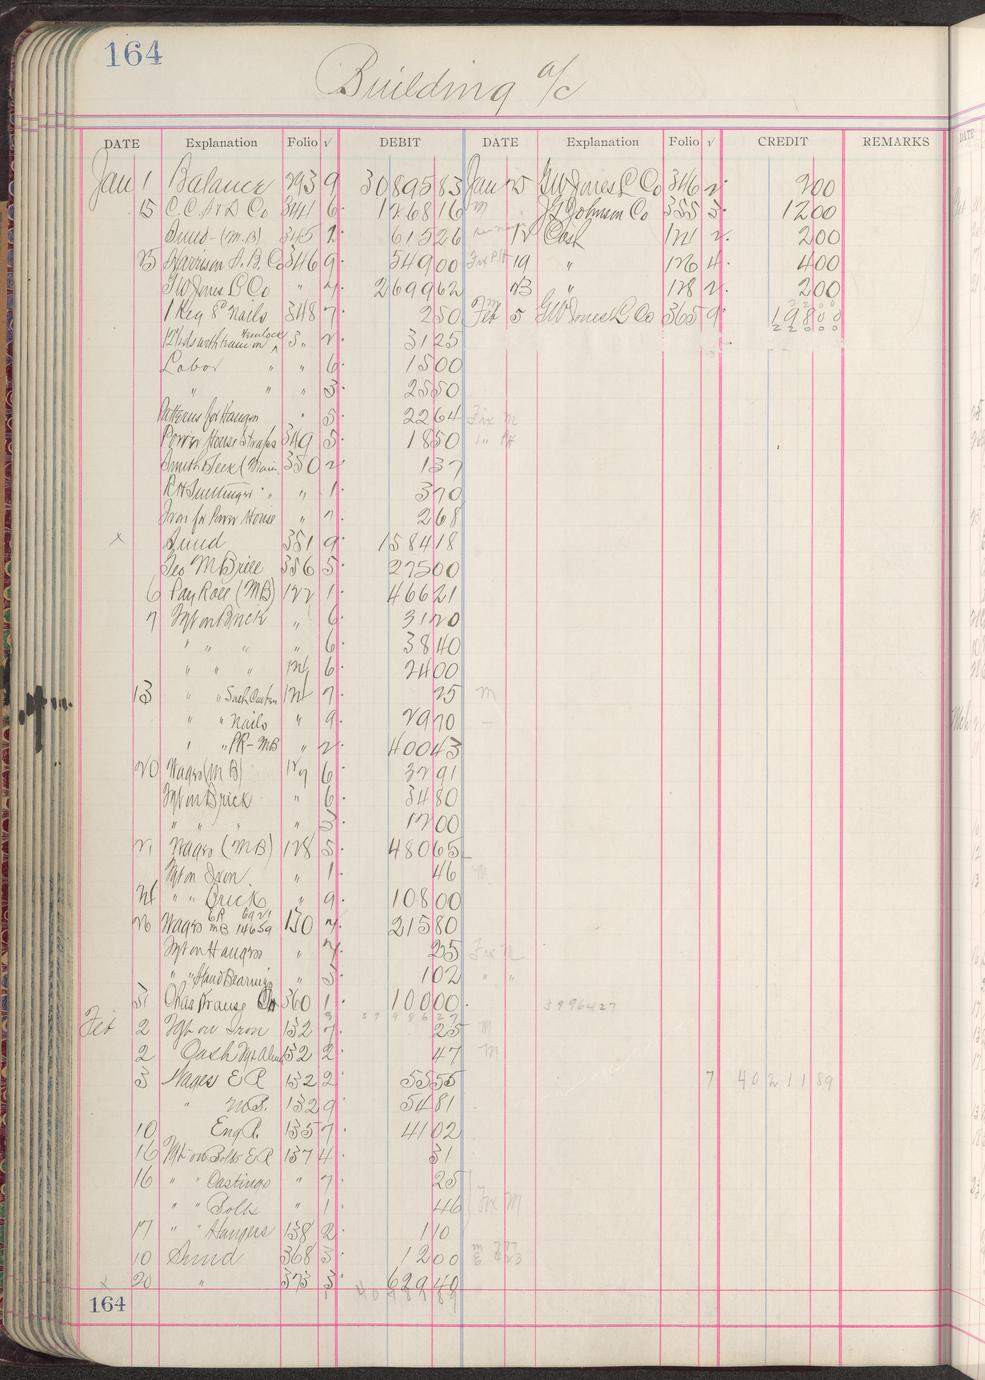 164
Building a/c
DATE Explanation Folio √ DEBIT DATE Explanation Folio √ CREDIT REMARKS
Jan 1 Balance 293 9 3089583 Jan 25 GW Jones L Co 346 2 200
15 C.C. & D Co 341 6 126816 m J G Johnson Co 355 3 1200
Sund- (M.B) 345 2 61526 12 Cash 121 2 200
25 Harrison S. B. Co 346 9 54900 19 " 126 4 400
GW Jones L Co " 7 269962 23 " 128 2 200
1 Keg 8d Nails 348 7 250 Feb 5 GW Jones L Co 365 9 19800
22000
Hemlock " 2 3125
Labor " " 6 1500
" " " 3 2550
Patterns for Hangers " 5 2264 Fix M
Power House Straps 349 5 1850
350 2 137
" " 1 370
Iron for Power House " 7 268
x Sund 351 9 158418
Geo M Brill 356 5 27500
6 Pay Roll (MB) 122 1 46621
7 Fgt on Brick " 6 3120
" " " " 6 3840
" " " 124 6 2400
13 " " 124 7 25 M
" " Nails " 9 2970
" " PR-MB " 2 40043
20 Wages (MB) 127 6 3291
Fgt on Brick " 6 3480
" " " " 3 1200
21 Wages (MB) 128 5 48065
Fgt on Iron " 1 46 M
24 " " Brick " 9 10800
26 Wages ER 6921 MB 14659 130 7 21580
Fgt on Hangers " 7 25 Fix M
" " Stand Bearing " 3 102 " "
31 Chas Krause Co 360 1 10000 3996427
Feb 2 Fgt on Iron 132 7 25 M
2 Cash Fgt 132 2 47 M
3 Wages E R 132 2 5555 7 4021189
" M.B. 132 9 5481
10 Eng R. 135 7 4102
16 Fgt on Bolts E R 137 4 31
16 " " Castings " 7 25
" " Bolts " 1 46 Fix M
17 " " Hangers 138 2 110
10 Sund 368 3 1200
x 20 " 373 3 62940
164